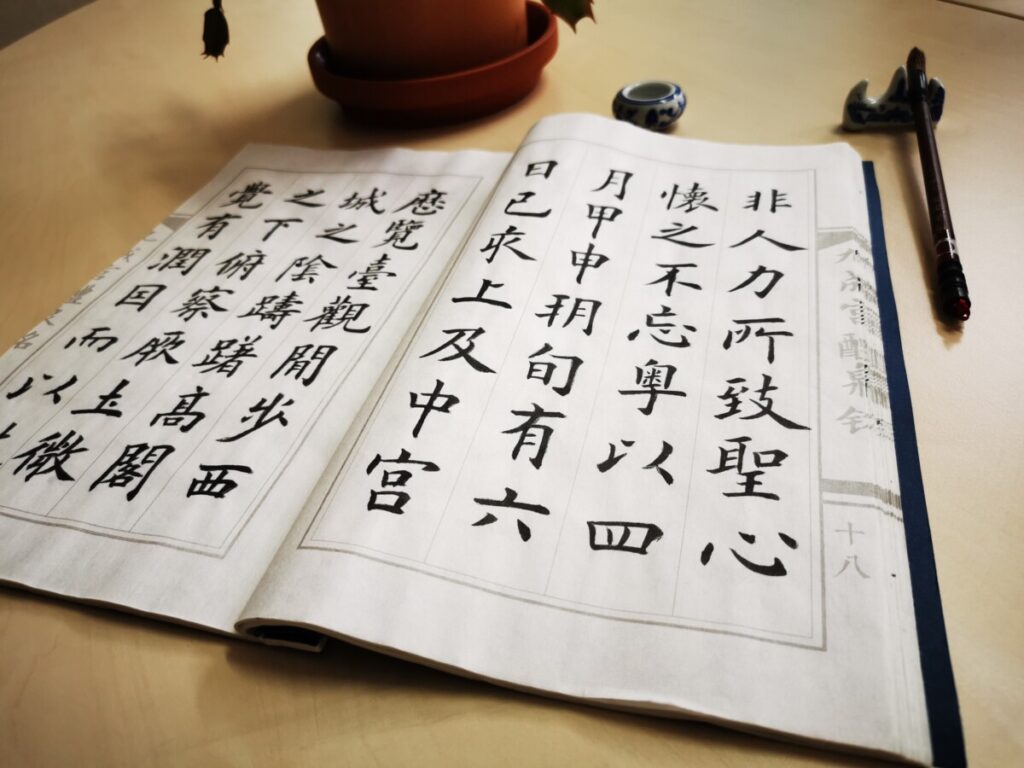 非人力所致聖心
懷之不忘粤以四
月甲申朔旬有六
日己亥上及中宮
歷覽臺觀閒步西
城之陰躊躇高閣
之下俯察厥土微
覺有潤因而以
九成宫醴泉铭
十八